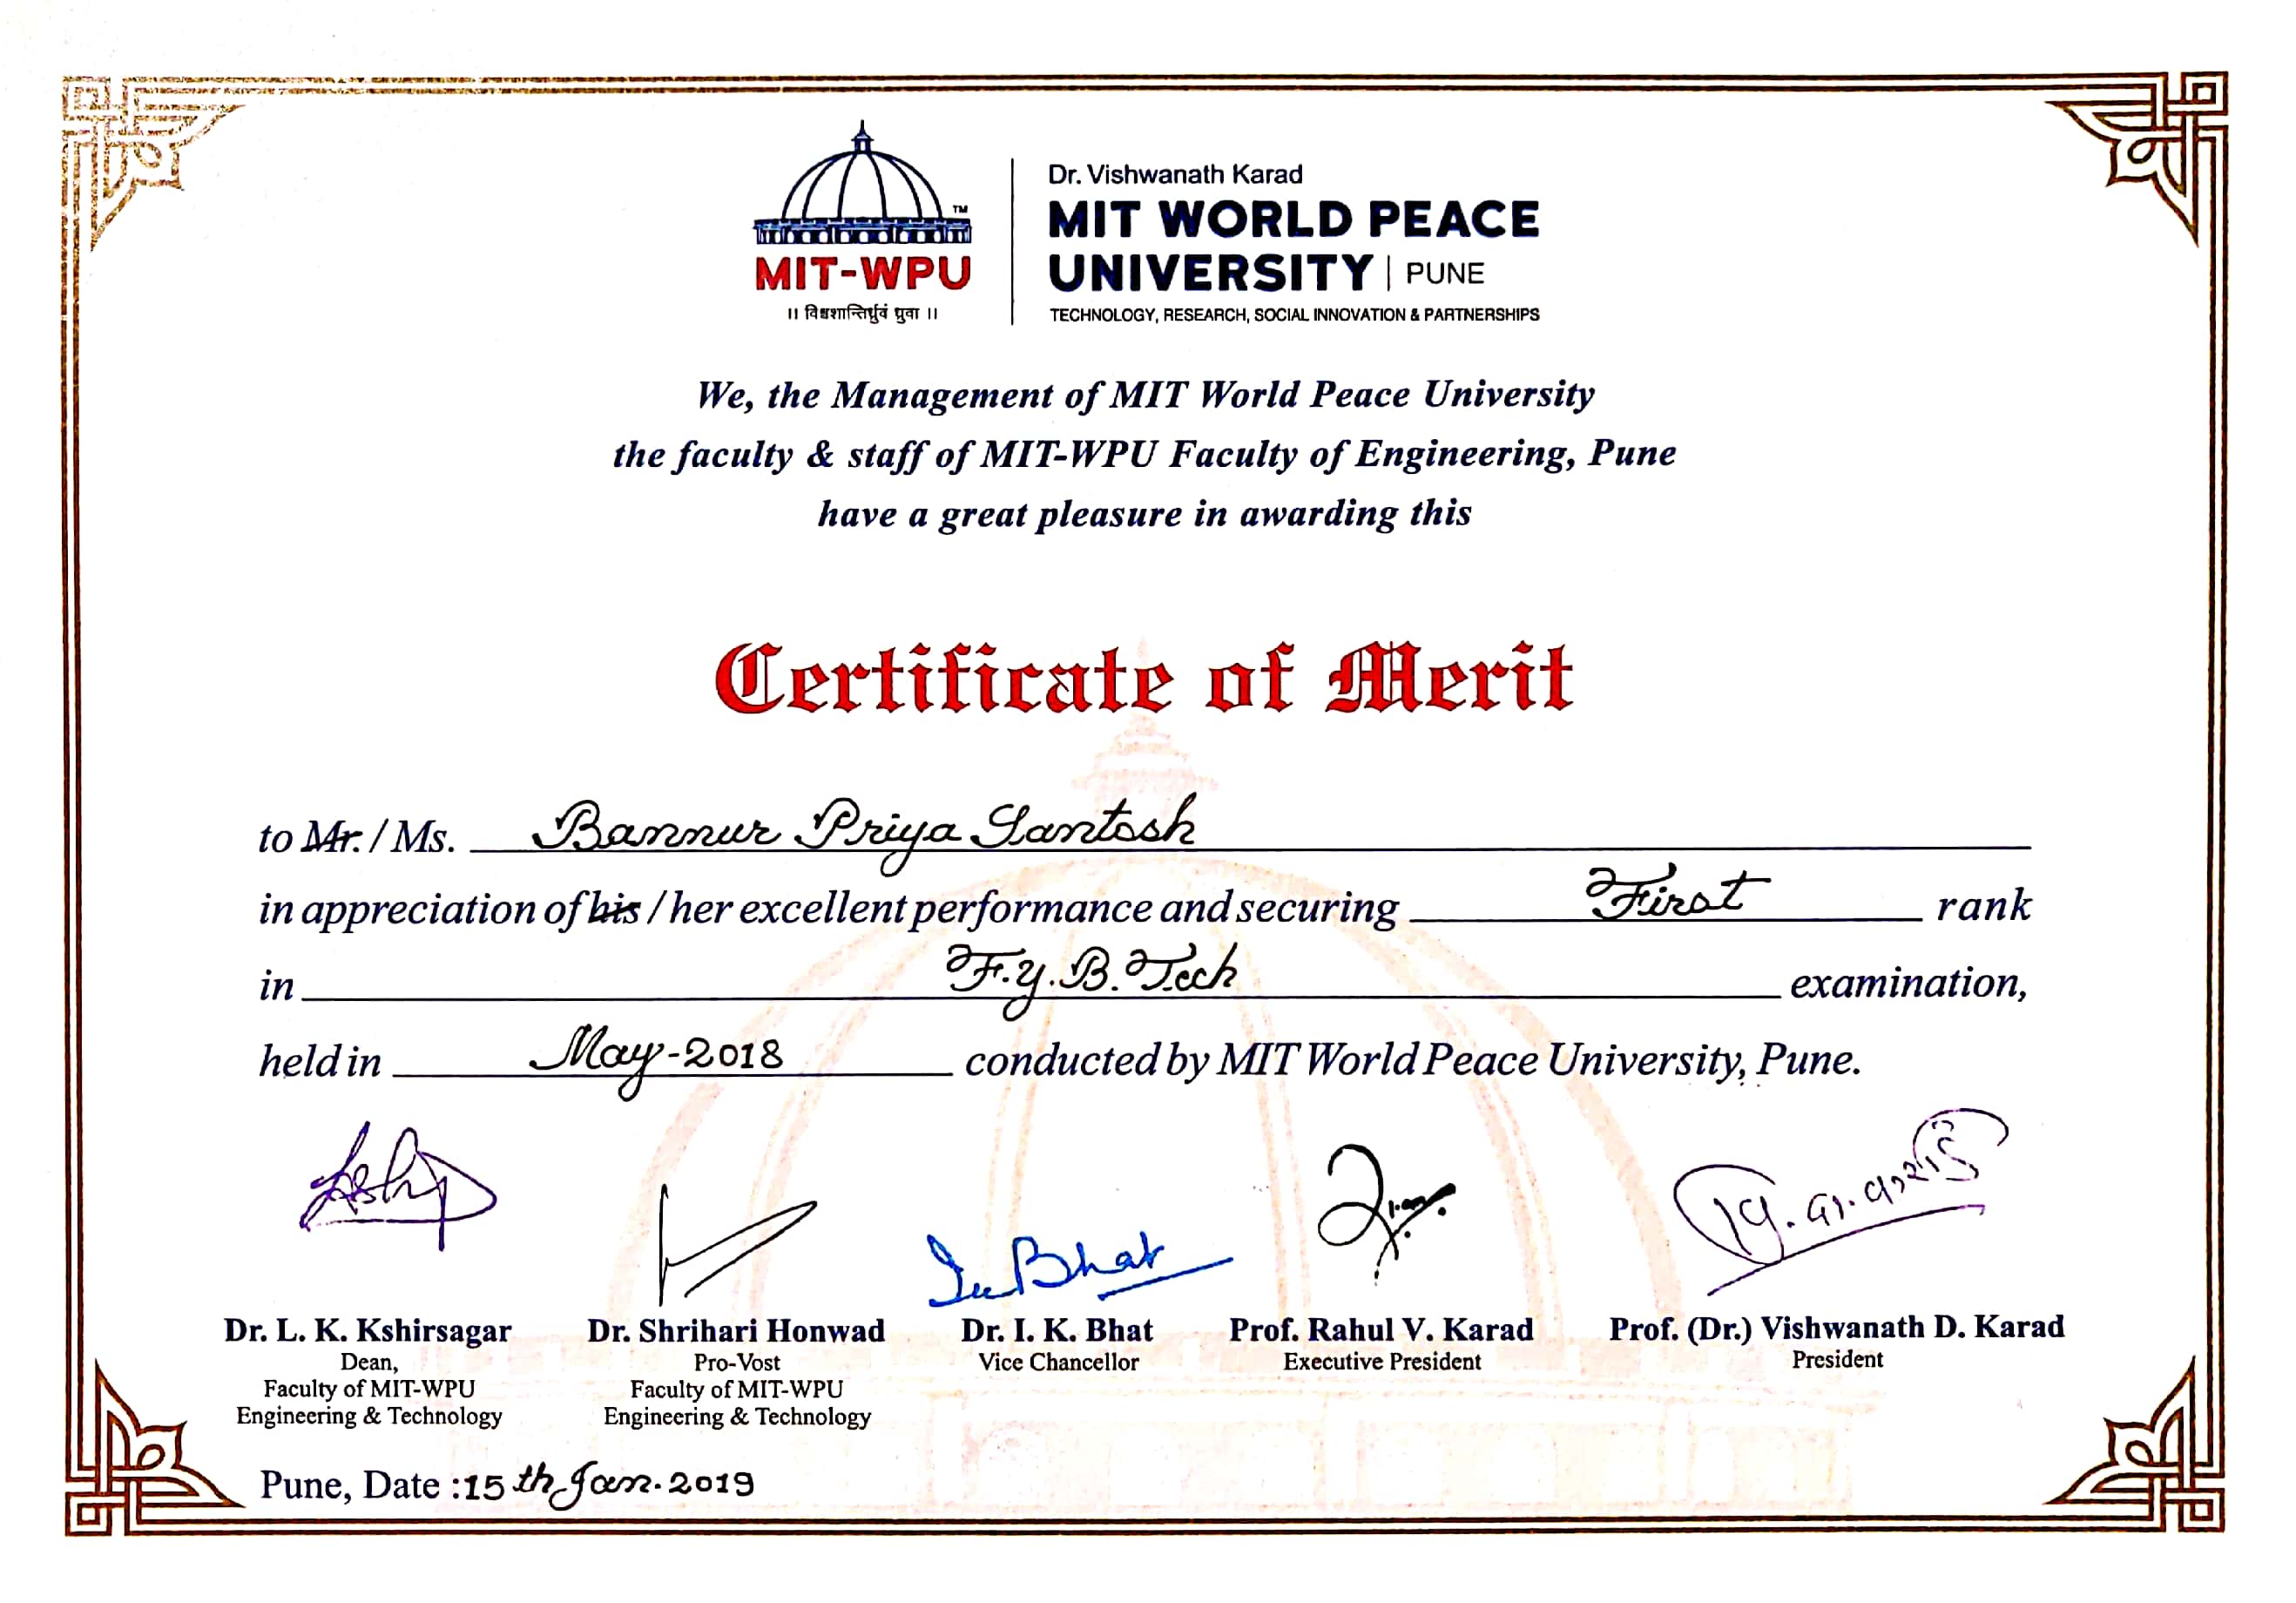 Dr. Vishwanath Karad
MIT WORLD PEACE
UNIVERSITY | PUNE
TECHNOLOGY, RESEARCH, SOCIAL INNOVATION & PARTNERSHIPS
TM
MIT-WPU
।। विश्वशान्तिर्ध्रुवं ध्रुवा ।।
We, the Management of MIT World Peace University
the faculty & staff of MIT-WPU Faculty of Engineering, Pune
have a great pleasure in awarding this
Certificate of Merit
to Mr. / Ms. Bannur Priya Santosh
in appreciation of his / her excellent performance and securing First rank
in F.Y.B.Tech examination,
held in May-2018 conducted by MIT World Peace University, Pune.
Bhat
Dr. L. K. Kshirsagar
Dean,
Faculty of MIT-WPU
Engineering & Technology
Dr. Shrihari Honwad
Pro-Vost
Faculty of MIT-WPU
Engineering & Technology
Dr. I. K. Bhat
Vice Chancellor
Prof. Rahul V. Karad
Executive President
Prof. (Dr.) Vishwanath D. Karad
President
Pune, Date : 15th Jan. 2019